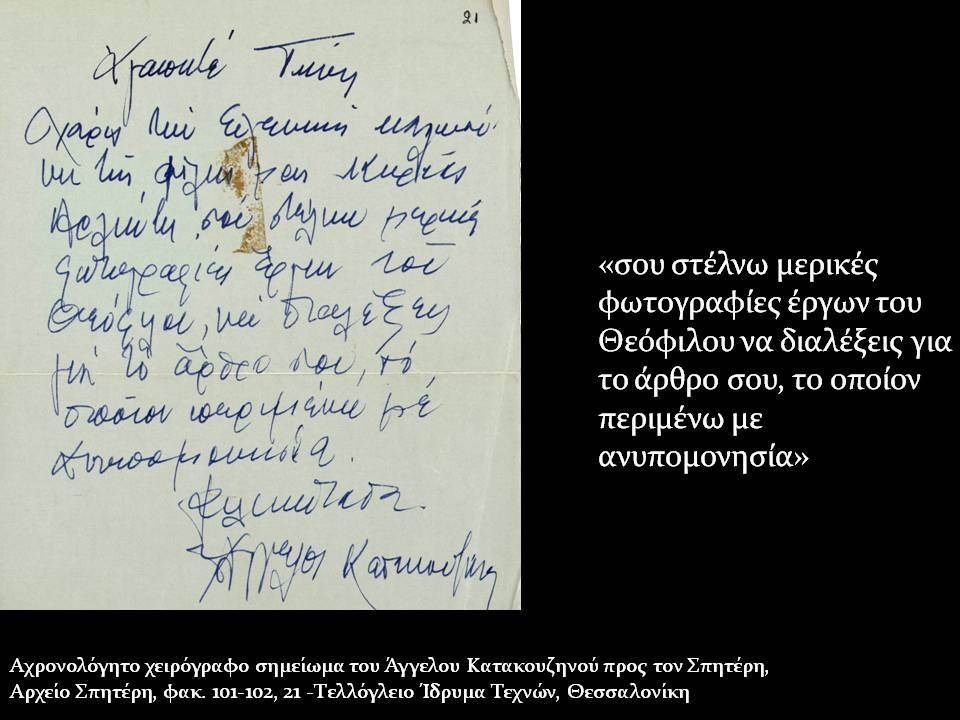 21
Αγαπητέ Τώνη
Χάρις στην ευγενική καλωσύ-
νη της φίλης μας Κυρίας
σού στέλνω μερικές
φωτογραφίες έργων τού
Θεόφιλου, νά διαλέξεις
γιά τό ἄρθρο σου, τό
οποίον περιμένω μέ
ανυπομονησία.
Φιλικώτατα.
Άγγελος Κατακουζηνός
«σου στέλνω μερικές
φωτογραφίες έργων του
Θεόφιλου να διαλέξεις για
το άρθρο σου, το οποίον
περιμένω με
ανυπομονησία»
Αχρονολόγητο χειρόγραφο σημείωμα του Άγγελου Κατακουζηνού προς τον Σπητέρη,
Αρχείο Σπητέρη, φακ. 101-102, 21 -Τελλόγλειο Ίδρυμα Τεχνών, Θεσσαλονίκη